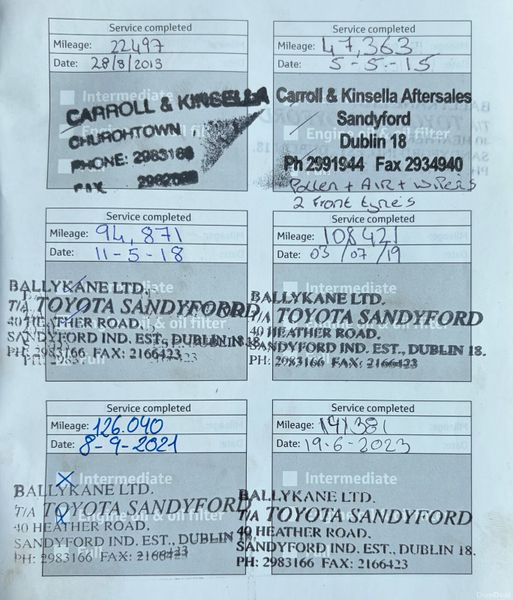 Service completed
Mileage: 22497
Date: 28/8/2013
Intermediate
CARROLL & KINSELLA
CHURCHTOWN
PHONE: 2983166
FAX
Service completed
Mileage: 47,363
Date: 5-5-15
Carroll & Kinsella Aftersales
Sandyford
Engine oil & oil filter
Dublin 18
Ph 2991944 Fax 2934940
Pollen + AIR + wipers
2 Front tyre's
Service completed
Mileage: 94,871
Date: 11-5-18
BALLYKANE LTD.
T/A TOYOTA SANDYFORD
40 HEATHER ROAD.
SANDYFORD IND. EST., DUBLIN 18.
PH: 2983166 FAX: 2166423
Service completed
Mileage: 108421
Date: 03/07/19
Intermediate
BALLYKANE LTD.
T/A TOYOTA SANDYFORD
40 HEATHER ROAD.
SANDYFORD IND. EST., DUBLIN 18.
PH: 2983166 FAX: 2166423
Service completed
Mileage: 126.040
Date: 8-9-2021
Intermediate
BALLYKANE LTD.
T/A TOYOTA SANDYFORD
& oil filter
40 HEATHER ROAD.
SANDYFORD IND. EST., DUBLIN 18.
Full
PH: 2983166 FAX: 2166423
Service completed
Mileage: 141381
Date: 19-6-2023
Intermediate
BALLYKANE LTD.
T/A TOYOTA SANDYFORD
40 HEATHER ROAD.
SANDYFORD IND. EST., DUBLIN 18.
PH: 2983166 FAX: 2166423
DoneDeal